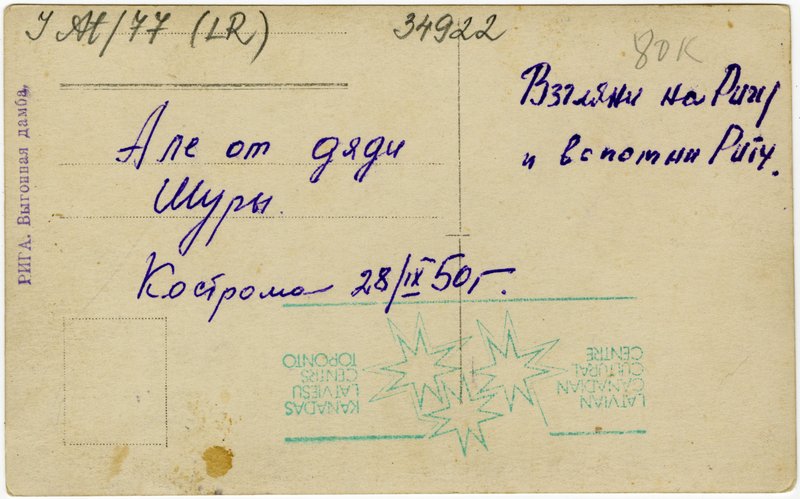 I At/77 (LR)
34922
80к
РИГА. Выгонная дамба.
Взгляни на Ригу
и вспомни Риту.
Але от дяди
Шуры.
Кострома 28/IX 50 г.
KANADAS
LATVIESU
CENTRS
TORONTO
LATVIAN
CANADIAN
CULTURAL
CENTRE